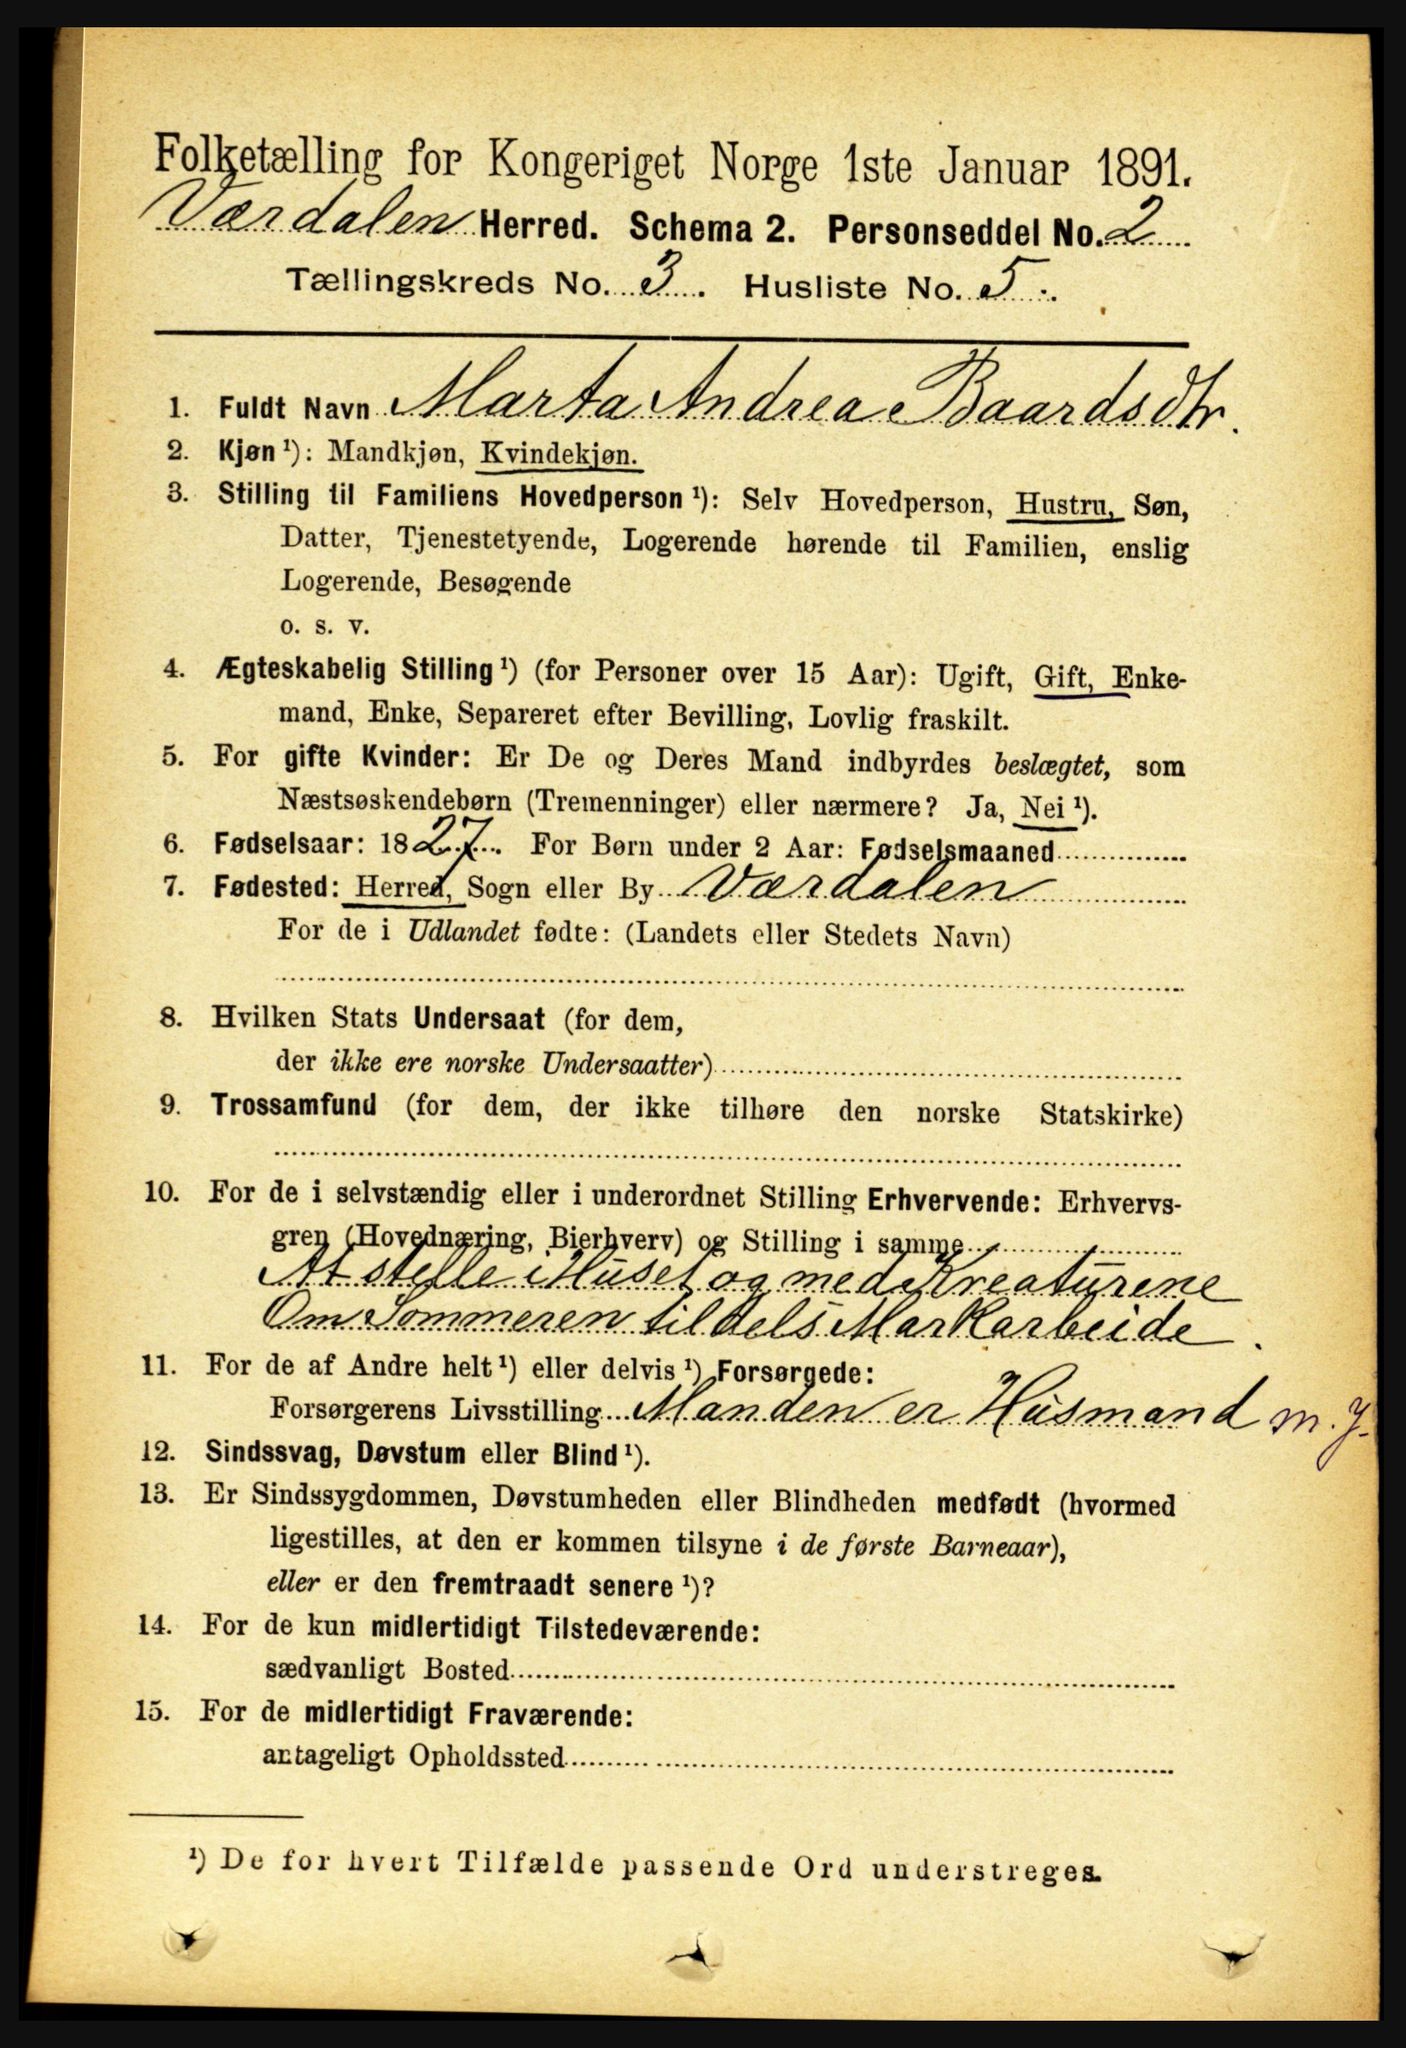 Folketælling for Kongeriget Norge 1ste Januar 1891.
Værdalen Herred. Schema 2. Personseddel No. 2
Tællingskreds No. 3. Husliste No. 5.
1. Fuldt Navn Marta Andrea Baardsdtr.
2. Kjøn ¹): Mandkjøn, Kvindekjøn.
3. Stilling til Familiens Hovedperson ¹): Selv Hovedperson, Hustru, Søn,
Datter, Tjenestetyende, Logerende hørende til Familien, enslig
Logerende, Besøgende
o. s. v.
4. Ægteskabelig Stilling ¹) (for Personer over 15 Aar): Ugift, Gift, Enke-
mand, Enke, Separeret efter Bevilling, Lovlig fraskilt.
5. For gifte Kvinder: Er De og Deres Mand indbyrdes beslægtet, som
Næstsøskendebørn (Tremenninger) eller nærmere? Ja, Nei ¹).
6. Fødselsaar: 1827. For Børn under 2 Aar: Fødselsmaaned
7. Fødested: Herred, Sogn eller By Værdalen
For de i Udlandet fødte: (Landets eller Stedets Navn)
8. Hvilken Stats Undersaat (for dem,
der ikke ere norske Undersaatter)
9. Trossamfund (for dem, der ikke tilhøre den norske Statskirke)
10. For de i selvstændig eller i underordnet Stilling Erhvervende: Erhvervs-
gren (Hovednæring, Bierhverv) og Stilling i samme
At stelle i Huset og med Kreaturene
Om Sommeren tildels Markarbeide.
11. For de af Andre helt ¹) eller delvis ¹) Forsørgede:
Forsørgerens Livsstilling Manden er Husmand m. J.
12. Sindssvag, Døvstum eller Blind ¹).
13. Er Sindssygdommen, Døvstumheden eller Blindheden medfødt (hvormed
ligestilles, at den er kommen tilsyne i de første Barneaar),
eller er den fremtraadt senere ¹)?
14. For de kun midlertidigt Tilstedeværende:
sædvanligt Bosted
15. For de midlertidigt Fraværende:
antageligt Opholdssted
¹) De for hvert Tilfælde passende Ord understreges.